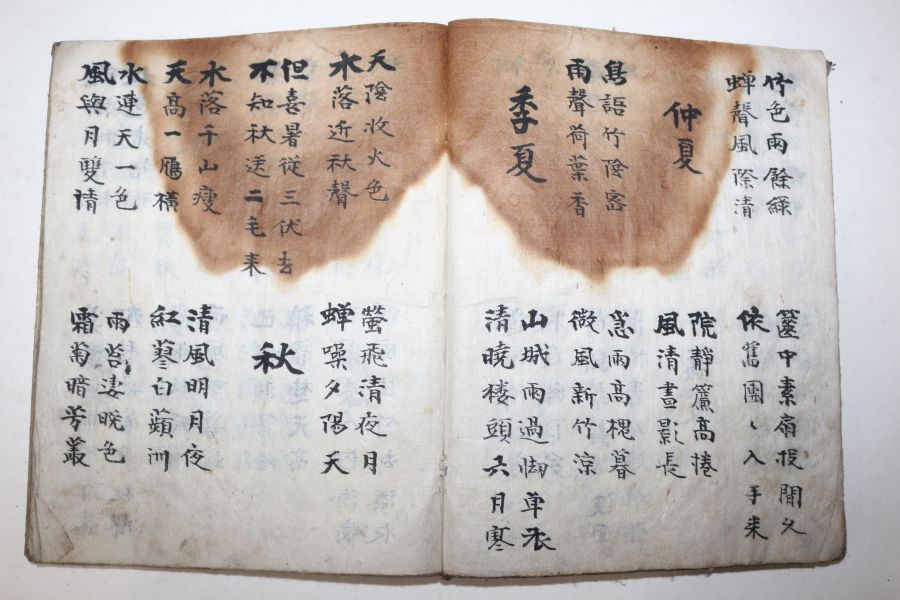 竹色雨餘綠
蟬聲風際清
仲夏
鳥語竹陰密
雨聲荷葉香
季夏
篋中素扇投閒久
依舊團〻入手来
院靜簾高捲
風清晝影長
急雨高槐暮
微風新竹涼
山城雨過單衣
清曉楼頭六月寒
天陰收火色
水落近秋聲
但喜暑従三伏去
不知秋送二毛来
水落千山瘦
天高一鴈橫
水連天一色
風與月雙清
螢飛清夜月
蟬噪夕陽天
秋
清風明月夜
紅蓼白蘋洲
雨苔凄晚色
霜菊暗芳叢